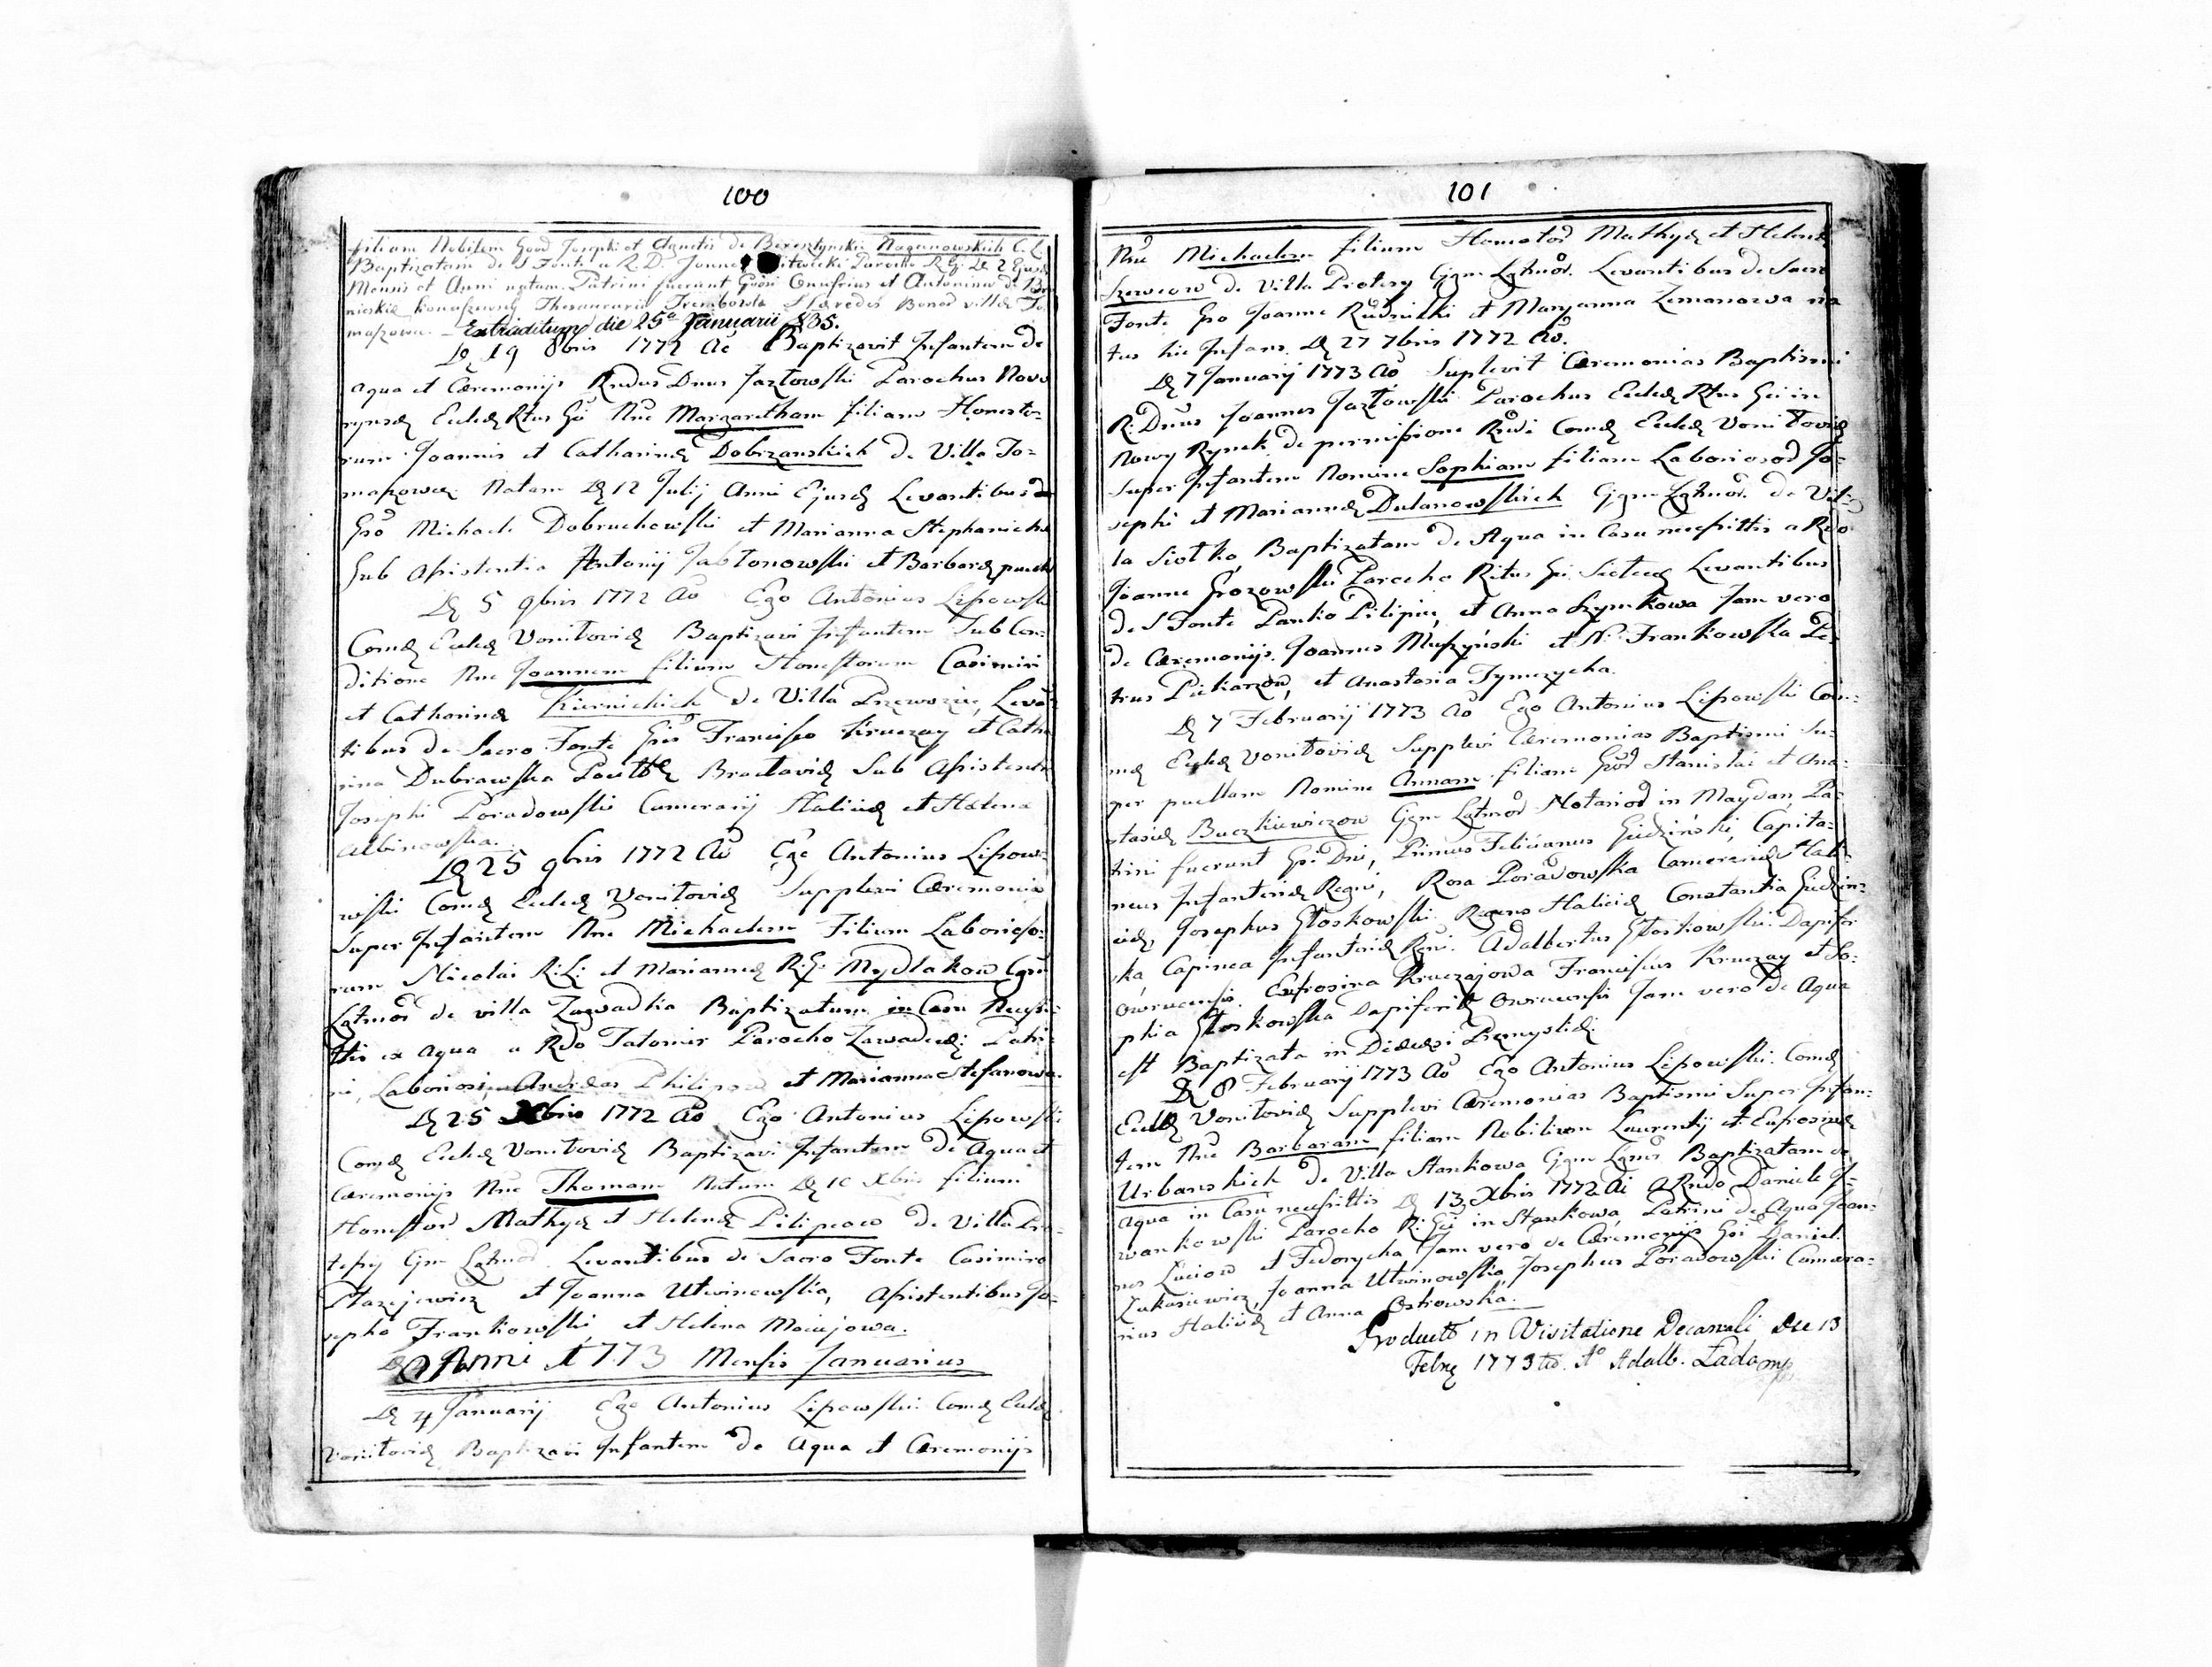 100
filiam Nobilem Gnod Josephi et Agnetis de Berezynskie Naganowskich C. L.
Baptizatam de S Fonte a R. D. Joanne Parocho R. G. De 2 Ejusd
Mensis et Anni natam. Patrini fuerunt Gnosi Onufrius et Antonina de
Thesauraria Trembowla Haredes Bonod villa To
maszowa. Extraditum die 25a Januarii 835.
De 19 8bris 1772 Ao Baptizavit Infantem de
aqua et Ceremonijs Rndus Dnus Jazłowski Parochus Novo
rynsis Eccle Rtus Gi Nne Margaretham filiam Honesto-
rum Joannis et Catharinae Dobrzanskich de Villa To-
maszowce Natam De 12 Julij Anni Ejusd Levantibus de
Gso Michaele Dobruchowski et Marianna Stephanicha
Sub Assistentia Antonij Jabłonowski et Barbara
De 5 9bris 1772 Ao Ego Antonius Lipowski
Comd Eccle Voniłovie Baptizavi Infantem Sub Con-
ditione Nne Joannem filium Honestorum Casimiri
et Catharina Kiernickich de Villa Przewoziec, Levan
tibus de Sacro Fonte Gsis Francisco Kruczay et Catha
rina Dubrawska Braclavie Sub Assistentia
Josephi Poradowski Camerarij Halicie et Helena
Albinowska.
De 25 9bris 1772 Ao Ego Antonius Lipow-
wski Comd Eccle Voniłovie Supplevi Ceremonia
Super Infantem Nne Michaelem Filium Laborioso-
rum Nicolai R. L. et Marianna R. G. Mydlakow Cgm
Lgtmor de villa Zawadka Baptizatum in Casu Necessi
ttis ex aqua a Rdo Tatomir Parocho Zawadecki Patri-
ni, Laboriosi, Andreas Philipow et Marianna Stefanowa.
De 25 Xbris 1772 Ao Ego Antonius Lipowski
Comd Eccle Voniłovie Baptizavi Infantem de Aqua et
Ceremonijs Nne Thomam Natum De 10 Xbris filium
Honestor Mathye et Helena Pilipcow de Villa Pro-
tesy Cgm Lgtmod Levantibus de Sacro Fonte Casimiro
Błazejewicz et Joanna Utwinowska, Assistentibus Jo-
sepho Frankowski et Helena Maciejowa.
Anni 1773 Mensis Januarius
De 4 Januarij Ego Antonius Lipowski Comd Eccle
Voniłovie Baptizavi Infantem de Aqua et Ceremonijs
101
Nne Michaelem filium Honestod Mathye et Helena
Szewcow de Villa Protesy Cgm Lgtmod. Levantibus de Sacro
Fonte Gso Joanne Rudnicki et Maryanna Zemanowa na
tus hic Infans De 27 7bris 1772 Ao.
De 7 Januarij 1773 Ao Suplevit Ceremonias Baptismi
R. Dnus Joannes Jazłowski Parochus Eccle Rtus Gi in
Nowy Rynek de permissione Rndi Comd Eccle Voniłovie
Super Infantem Nomine Sophiam filiam Laboriosod Jo-
sephi et Marianna Dulanowskich Cgm Lgtmod. de Vil-
la Siołko, Baptizatam de Aqua in Casu necessittis a Rdo
Joanne Grozowski Parocho Ritus Gi Levantibus
de S Fonte Panko Pilipiu, et Anna Szymkowa Jam vero
de Ceremonijs. Joannes Muszyński et N. Frankowska Pe-
trus Piekarzow, et Anastasia Tymczycha.
De 7 Februarij 1773 Ao Ego Antonius Lipowski Com-
md Eccle Voniłovie Supplevi Ceremonias Baptismi Su-
per puellam Nomine Annam filiam Gsod Stanislai et Ana-
stasia Buczkiewiczow Cgm Lgtmod Notariod in Maydan, Pa-
trini fuerunt Gsi Dni, Primus Felicianus Giedziński, Capita-
neus Infanteria Regni, Rosa Poradowska Camereria Hali-
cie, Josephus Głoskowski Regens Halicie Constantia Giedzin-
ska, Capinea Infanteria Regni. Adalbertus Głoskowski Dapifer
Owrucensis. Eufrosina Kruczajowa Franciscus Kruczay et So-
phia Głoskowska Dapiferia Owrucensis Jam vero de Aqua
est Baptizata in Diaecesi Premysliae
De 8 Februarij 1773 Ao Ego Antonius Lipowski Comd
Eccle Voniłovie Supplevi Ceremonias Baptismi Super Infan-
tem Nne Barbaram filiam Nobilium Laurentij et Eufrosina
Urbanskich de Villa Stankowa Cgm Lgmor Baptizatam de
Aqua in Casu necessittis De 13 Xbris 1772 Ai a Rndo Daniele J-
wankowski Parocho R. Gi in Stankowa, Patrini de Aqua Joan-
nes Luciow et Fedorycha Jam vero de Ceremonijs Gsi Daniel
Lukasiewicz, Joanna Utwinowska, Josephus Poradowski Camera-
rius Halicie et Anna Ostrowska.
Productt in Visitatione Decanali Die 13
Febry 1773tio. Ao Adalb. Łada mp